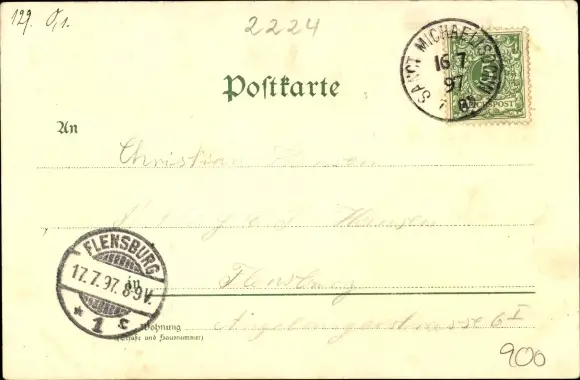 129. 0,1.
2224
SANCT MICHAELISDONN
16 7
97
REICHSPOST
Postkarte
An
Christian
Hansen
Flensburg
FLENSBURG
17.7.97. 8-9V.
* 1 c
in
Wohnung
(Straße und Hausnummer)
6 I
900